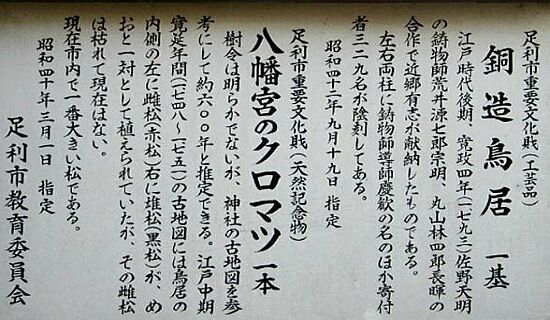 足利市重要文化財(工芸品)
銅造鳥居 一基
江戸時代後期、寛政四年(一七九三)佐野天明
の鋳物師荒井源七郎宗明、丸山林四郎長暉の
合作で近郷有志が献納したものである。
左右両柱に鋳物師導師慶歓の名のほか寄付
者三二九名が陰刻してある。
昭和四十二年九月十九日 指定
足利市重要文化財(天然記念物)
八幡宮のクロマツ 一本
樹令は明らかでないが、神社の古地図を参
考にして約六〇〇年と推定できる。江戸中期
寛延年間(一七四八〜一七五一)の古地図には鳥居の
内側の左に雌松(赤松)右に雄松(黒松)が、め
おと一対として植えられていたが、その雌松
は枯れて現在はない。
現在市内で一番大きい松である。
昭和四十年三月一日 指定
足利市教育委員会